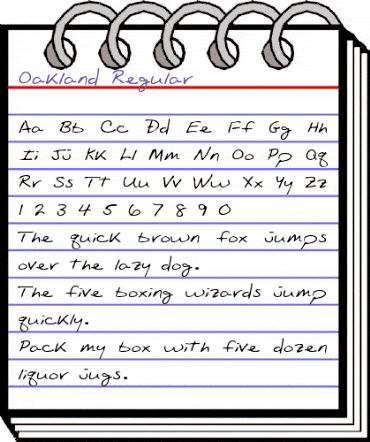 Oakland Regular
Aa Bb Cc Dd Ee Ff Gg Hh
Ii Jj Kk Ll Mm Nn Oo Pp Qq
Rr Ss Tt Uu Vv Ww Xx Yy Zz
1 2 3 4 5 6 7 8 9 0
The quick brown fox jumps
over the lazy dog.
The five boxing wizards jump
quickly.
Pack my box with five dozen
liquor jugs.